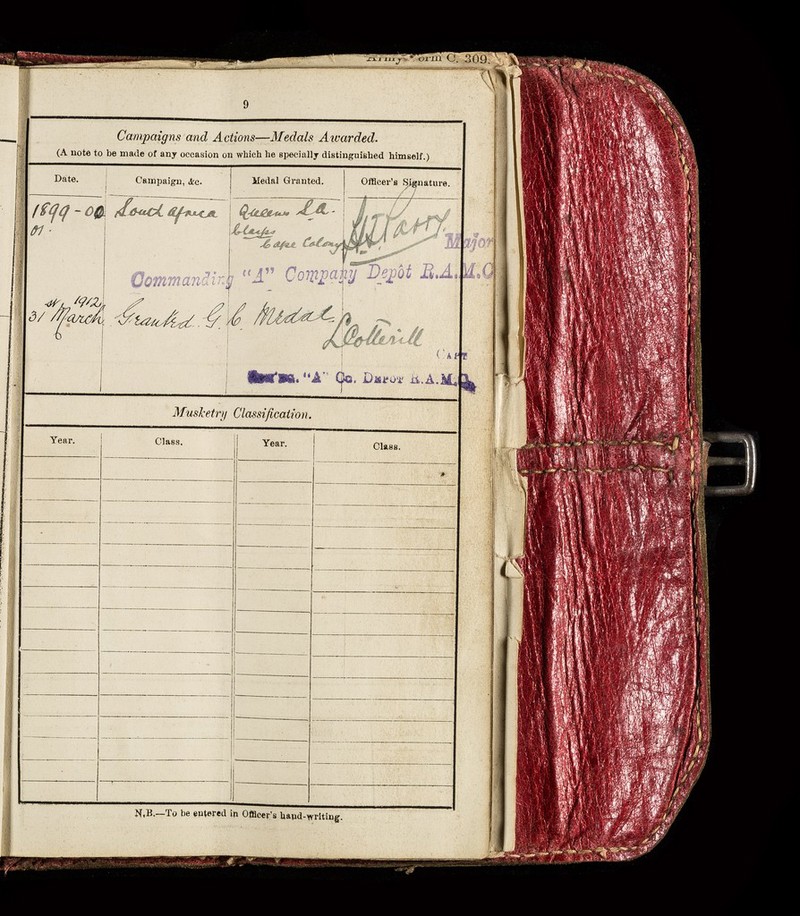 Army Form C. 309.
9
Campaigns and Actions—Medals Awarded.
(A note to be made of any occasion on which he specially distinguished himself.)
Date. Campaign, &c. Medal Granted. Officer's Signature.
1899-00 South Africa Queens S.A.
01. Clasps
Cape Colony
Major
Commanding "A" Company Depôt R.A.M.C
31st March 1912 Granted G. C. Medal
LCotterill
CAPT
"A" Co. DEPOT R.A.M.C.
Musketry Classification.
Year. Class. Year. Class.
N.B.—To be entered in Officer's hand-writing.